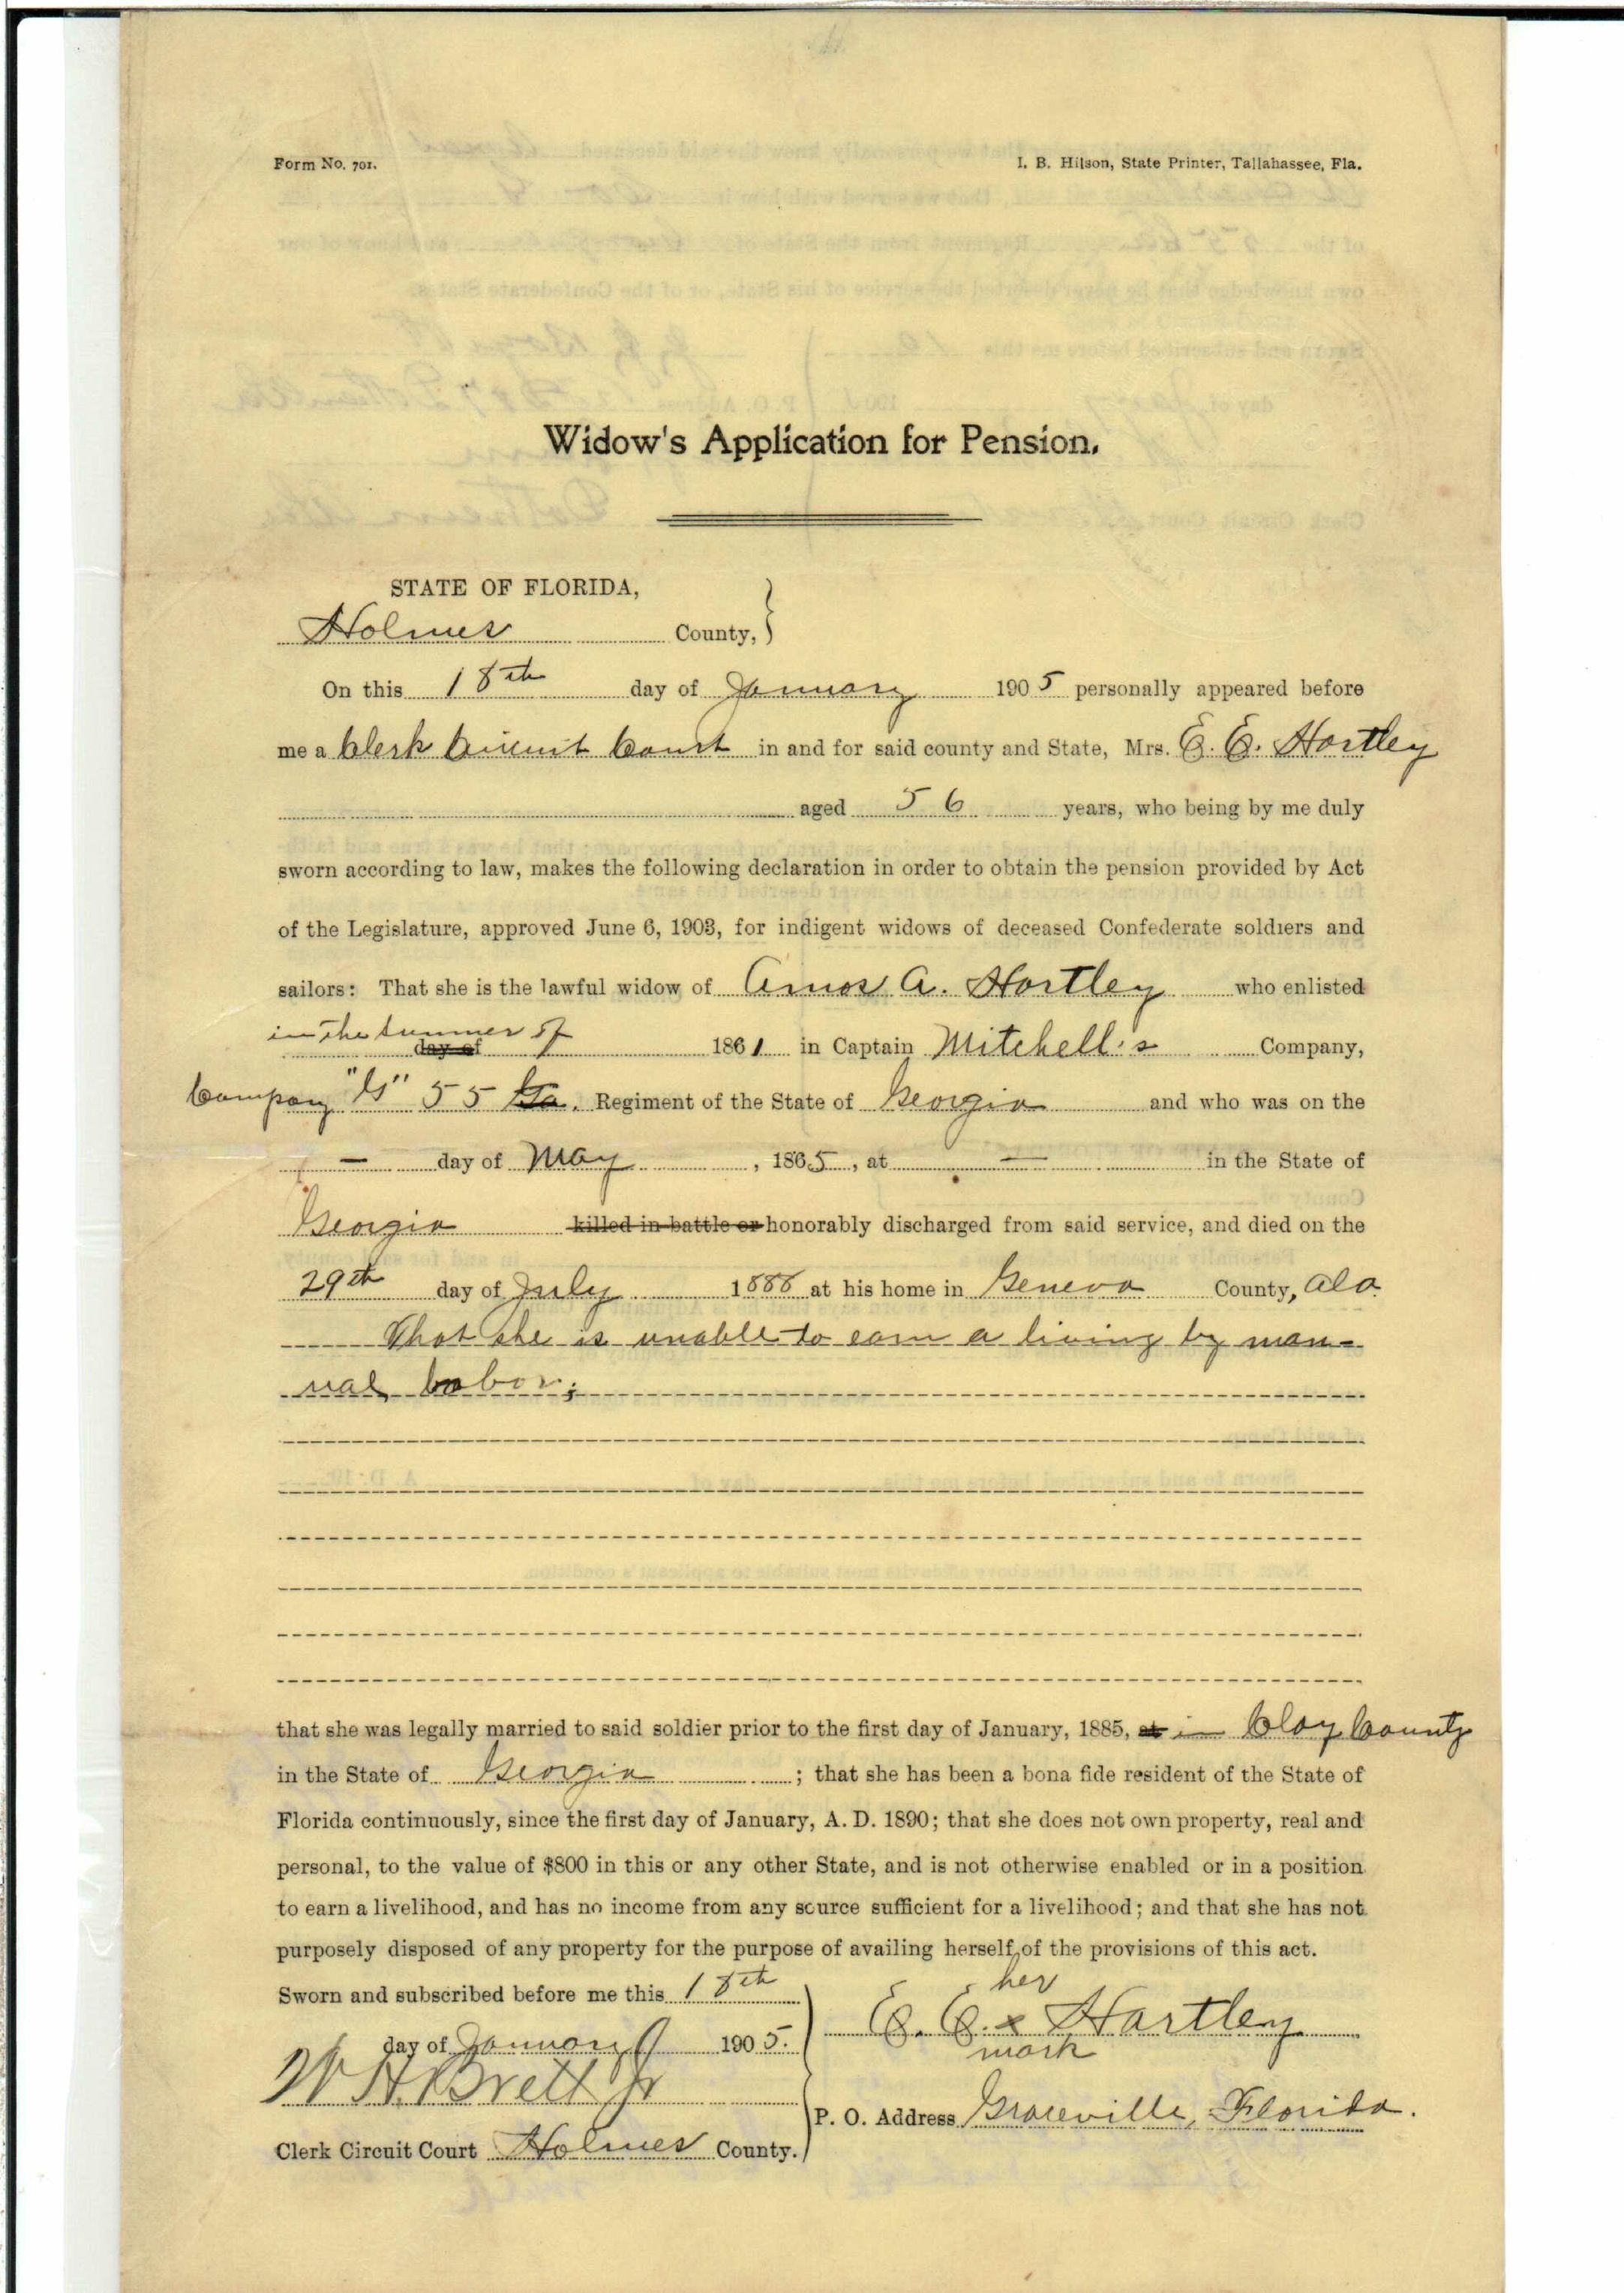 Form No. 701.
I. B. Hilson, State Printer, Tallahassee, Fla.
Widow's Application for Pension.
STATE OF FLORIDA,
Holmes County,
On this 18th day of January 1905 personally appeared before
me a Clerk Circuit Court in and for said county and State, Mrs. E. E. Hartley
aged 56 years, who being by me duly
sworn according to law, makes the following declaration in order to obtain the pension provided by Act
of the Legislature, approved June 6, 1903, for indigent widows of deceased Confederate soldiers and
sailors: That she is the lawful widow of Amos A. Hartley who enlisted
in the summer of day of 1861 in Captain Mitchell's Company,
Company "G" 55 Ga. Regiment of the State of Georgia and who was on the
— day of May, 1865, at — in the State of
Georgia killed in battle or honorably discharged from said service, and died on the
29th day of July 1888 at his home in Geneva County, Ala.
That she is unable to earn a living by man-
ual labor;
that she was legally married to said soldier prior to the first day of January, 1885, at in Clay County
in the State of Georgia; that she has been a bona fide resident of the State of
Florida continuously, since the first day of January, A. D. 1890; that she does not own property, real and
personal, to the value of $800 in this or any other State, and is not otherwise enabled or in a position
to earn a livelihood, and has no income from any source sufficient for a livelihood; and that she has not
purposely disposed of any property for the purpose of availing herself of the provisions of this act.
Sworn and subscribed before me this 18th
day of January 1905.
W H Brett Jr
Clerk Circuit Court Holmes County.
her
E. E. x Hartley
mark
P. O. Address Graceville, Florida.